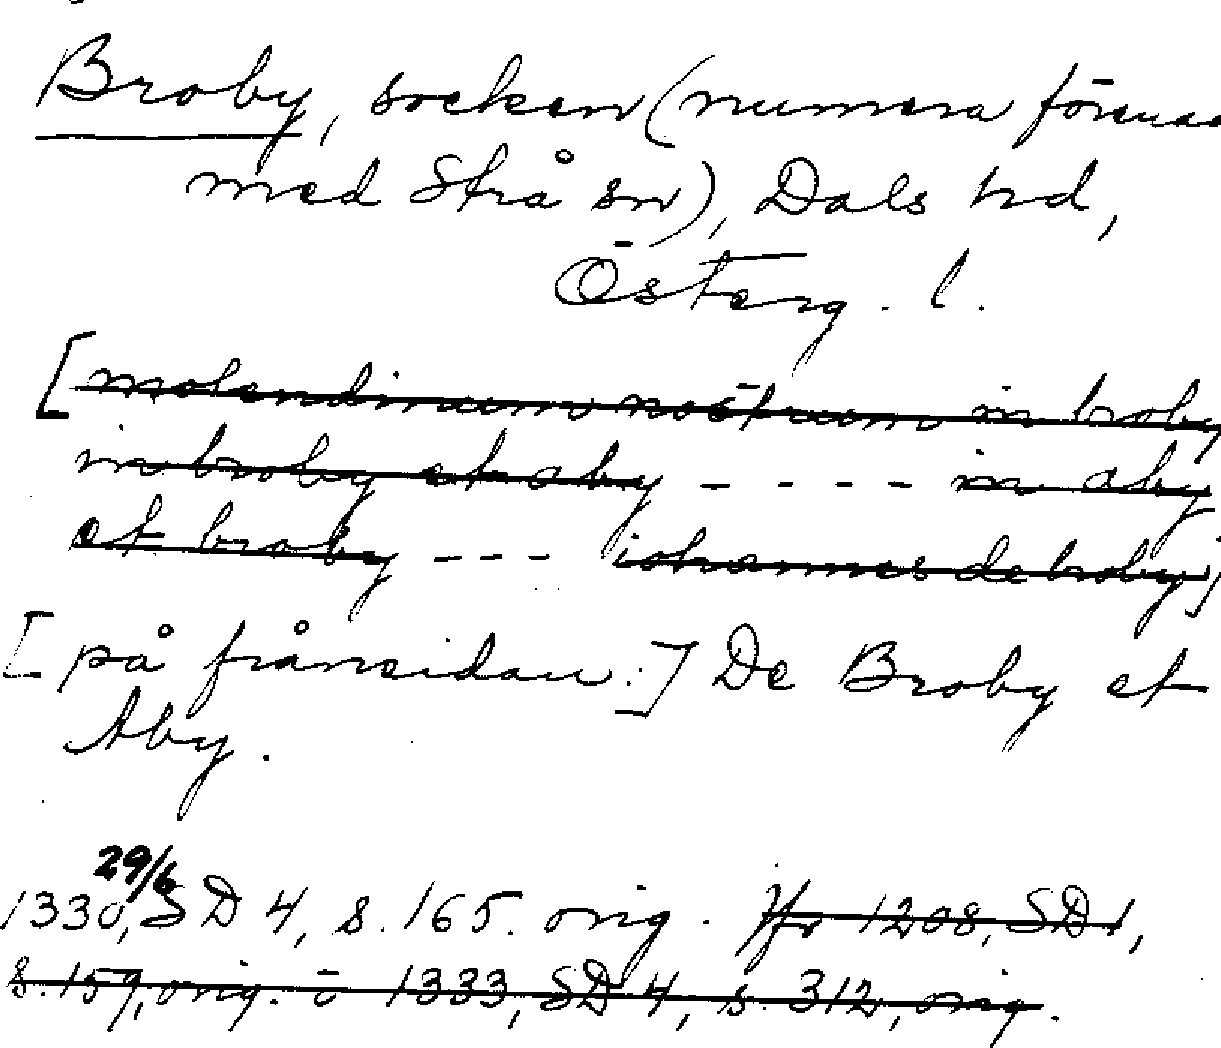 Broby, socken (numera förenad
med Strå sn), Dals hd,
Österg. l.
[molendinum nostrum in broby
in broby et aby - - - - in aby
et broby - - - iohannes de broby]
[på frånsidan:] De Broby et
Aby.
29/6
1330, SD 4, s. 165. orig. Jfr 1208, SD 1,
s. 159, orig. o 1333, SD 4, s. 312, orig.